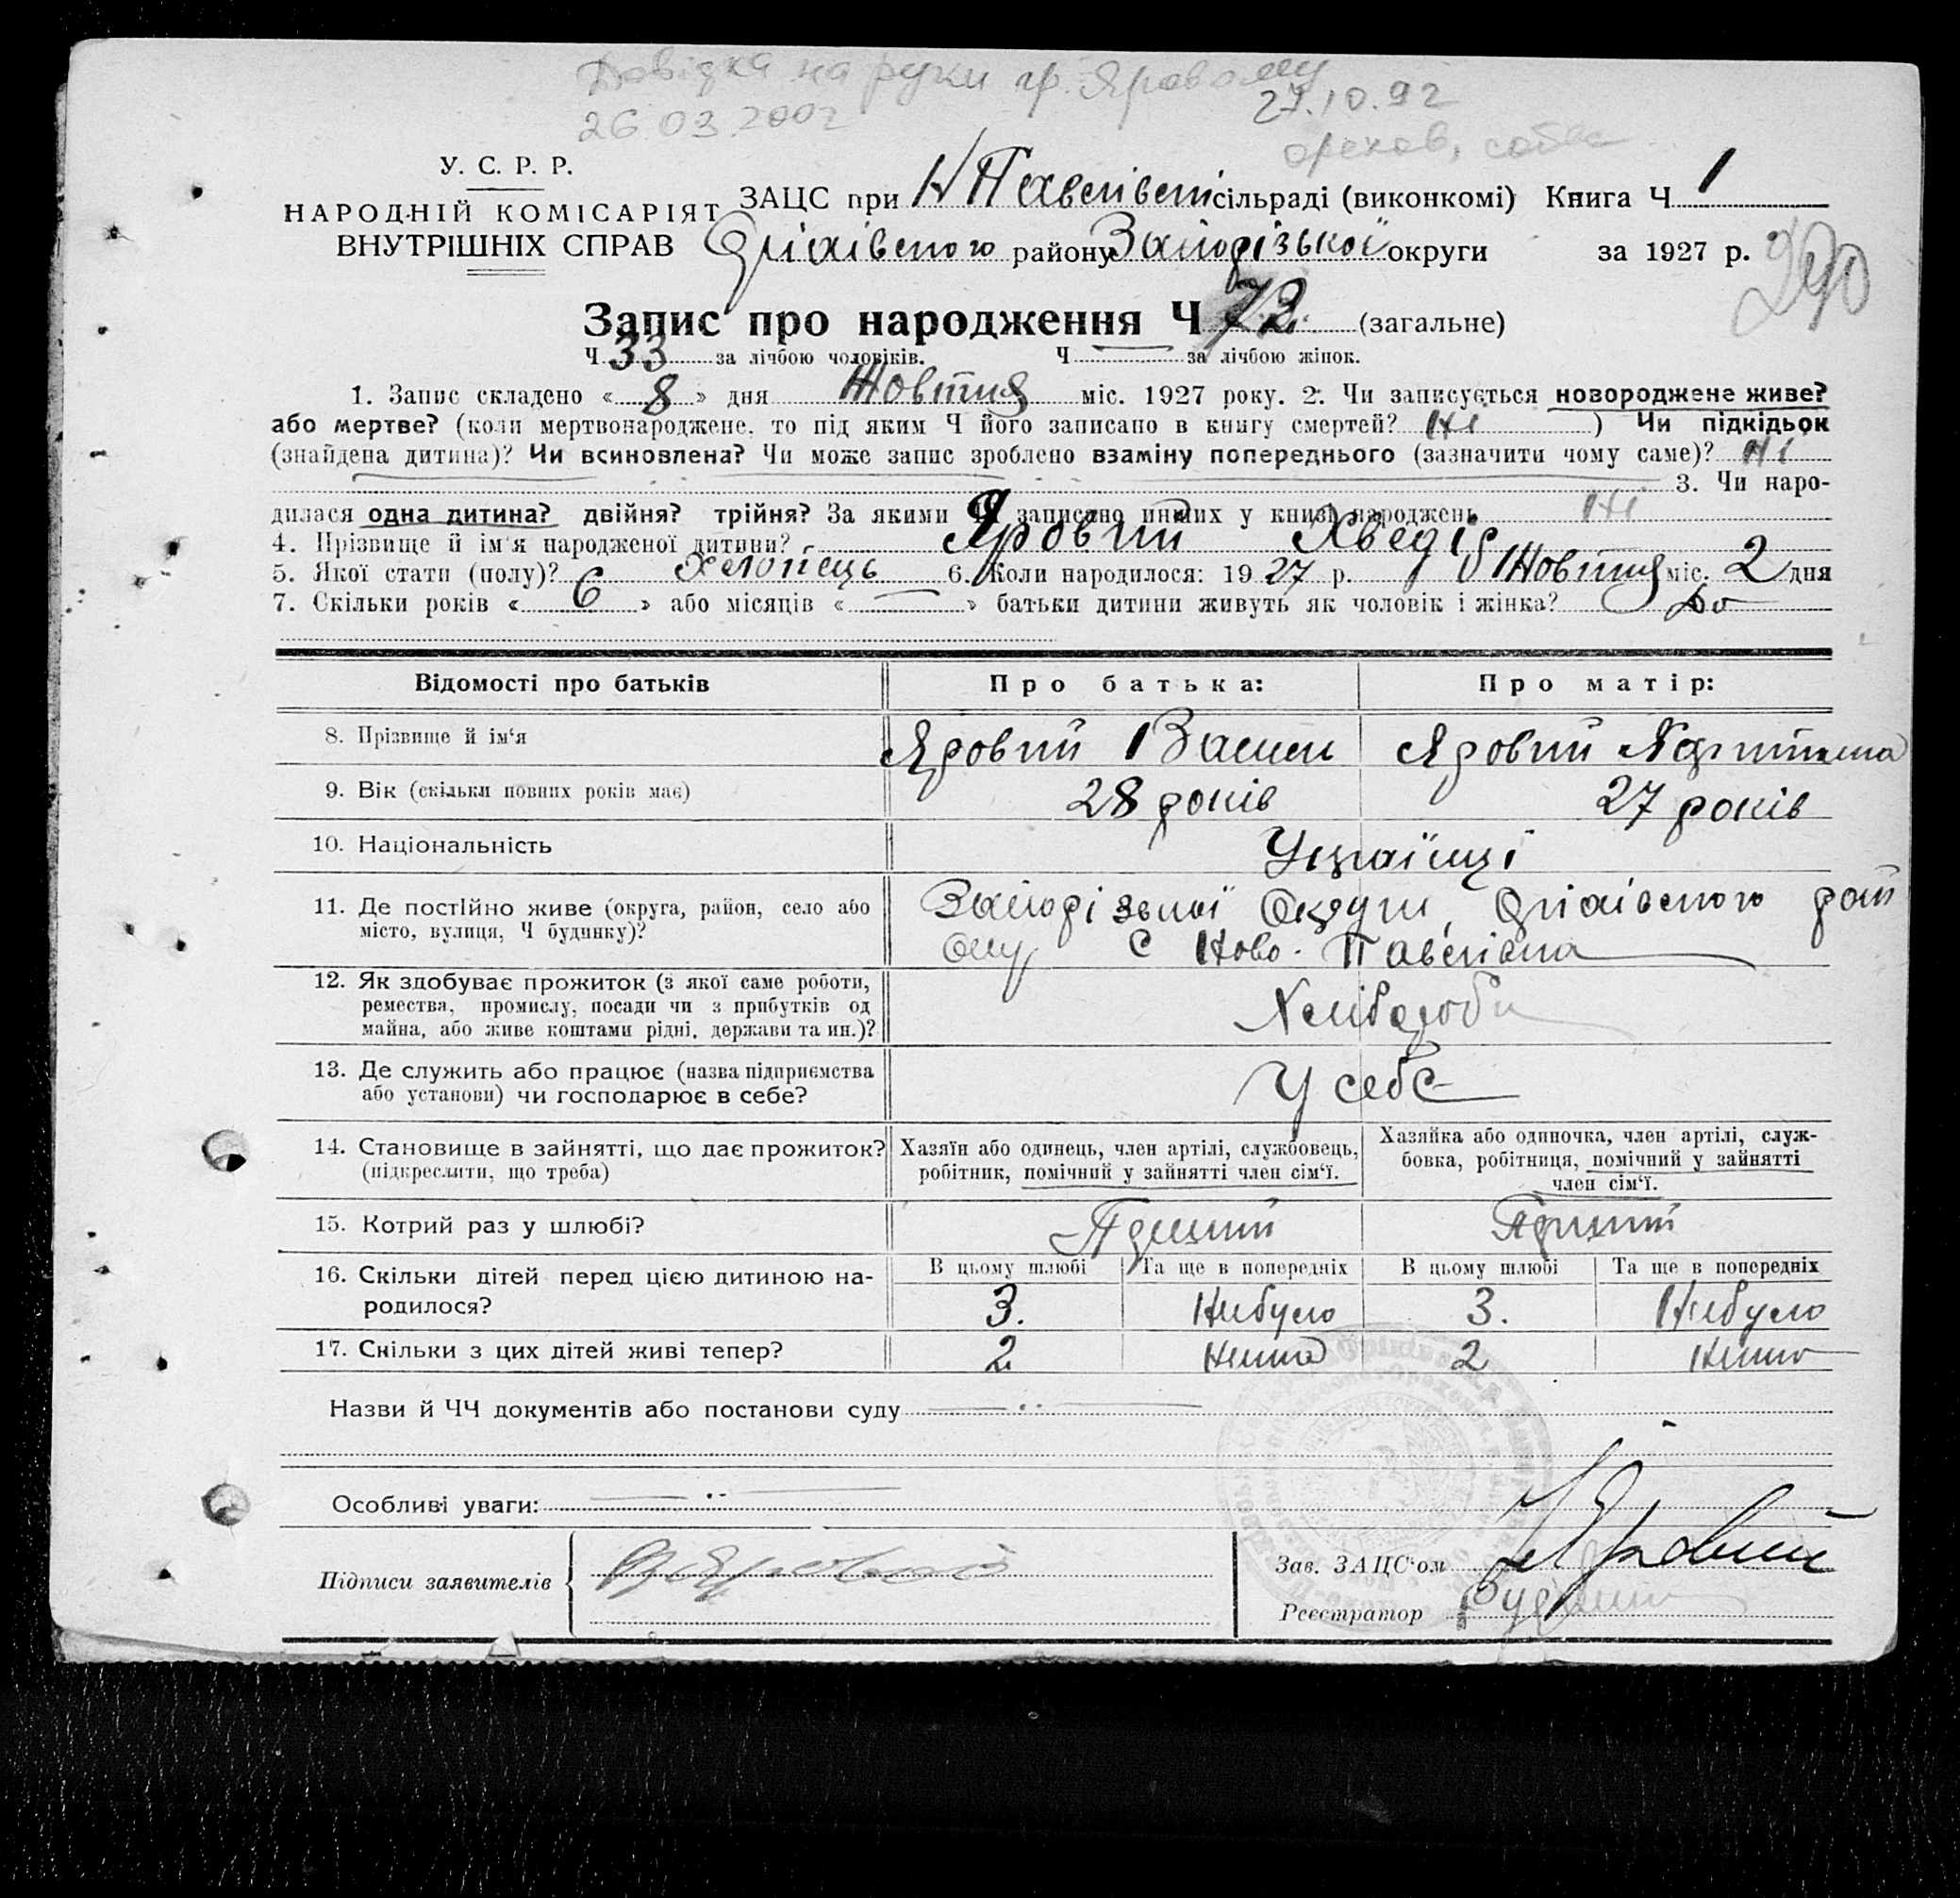 Довідка на руки гр. Яровому
26.03.2002 27.10.92
У. С. Р. Р.
НАРОДНІЙ КОМІСАРІЯТ
ВНУТРІШНІХ СПРАВ
ЗАЦС при Н Павлівській сільраді (виконкомі) Книга Ч 1
Оріхівського району Запорізької округи за 1927 р. 290
Запис про народження Ч 72 (загальне)
Ч 33 за лічбою чоловіків. Ч — за лічбою жінок.
1. Запис складено « 8 » дня Жовтня міс. 1927 року. 2. Чи записується новороджене живе?
або мертве? (коли мертвонароджене, то під яким Ч його записано в книгу смертей? Ні ) Чи підкідьок
(знайдена дитина)? Чи всиновлена? Чи може запис зроблено взаміну попереднього (зазначити чому саме)? Ні
3. Чи наро-
дилася одна дитина? двійня? трійня? За якими Ч записано инших у книзі народжень Ні
4. Прізвище й ім'я народженої дитини? Яровий Хведір
5. Якої стати (полу)? Хлопець 6. Коли народилося: 19 27 р. Жовтня міс. 2 дня
7. Скільки років « 6 » або місяців « — » батьки дитини живуть як чоловік і жінка?
Відомості про батьків Про батька: Про матір:
8. Прізвище й ім'я Яровий Яровий
9. Вік (скільки повних років має) 28 років 27 років
10. Національність Українці
11. Де постійно живе (округа, район, село або Запорізької Округи, Оріхівського рай
місто, вулиця, Ч будинку)? ону С Ново-Павлівка
12. Як здобуває прожиток (з якої саме роботи,
ремества, промислу, посади чи з прибутків од Хлібороби
майна, або живе коштами рідні, держави та ин.)?
13. Де служить або працює (назва підприємства У себе
або установи) чи господарює в себе?
14. Становище в зайнятті, що дає прожиток? Хазяїн або одинець, член артілі, службовець, Хазяйка або одиночка, член артілі, служ-
(підкреслити, що треба) робітник, помічний у зайнятті член сім'ї. бовка, робітниця, помічний у зайнятті
член сім'ї.
15. Котрий раз у шлюбі? Перший Перший
16. Скільки дітей перед цією дитиною на- В цьому шлюбі Та ще в попередніх В цьому шлюбі Та ще в попередніх
родилося? 3. Небуло 3. Небуло
17. Скільки з цих дітей живі тепер? 2 Нема 2 Нема
Назви й ЧЧ документів або постанови суду
Особливі уваги:
Підписи заявителів
Зав. ЗАЦС'ом Яровий
Реєстратор